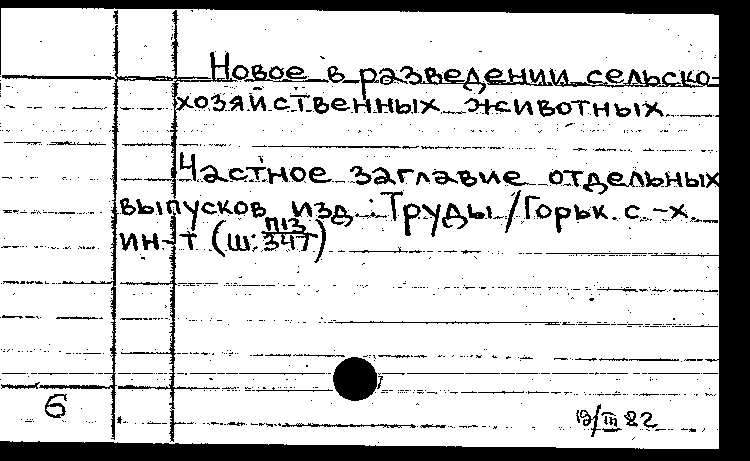 Новое в разведении сельско-
хозяйственных животных
Частное заглавие отдельных
выпусков изд.: Труды / Горьк. с.-х.
ин-т (Ш: П13/347)
6
19/III 82